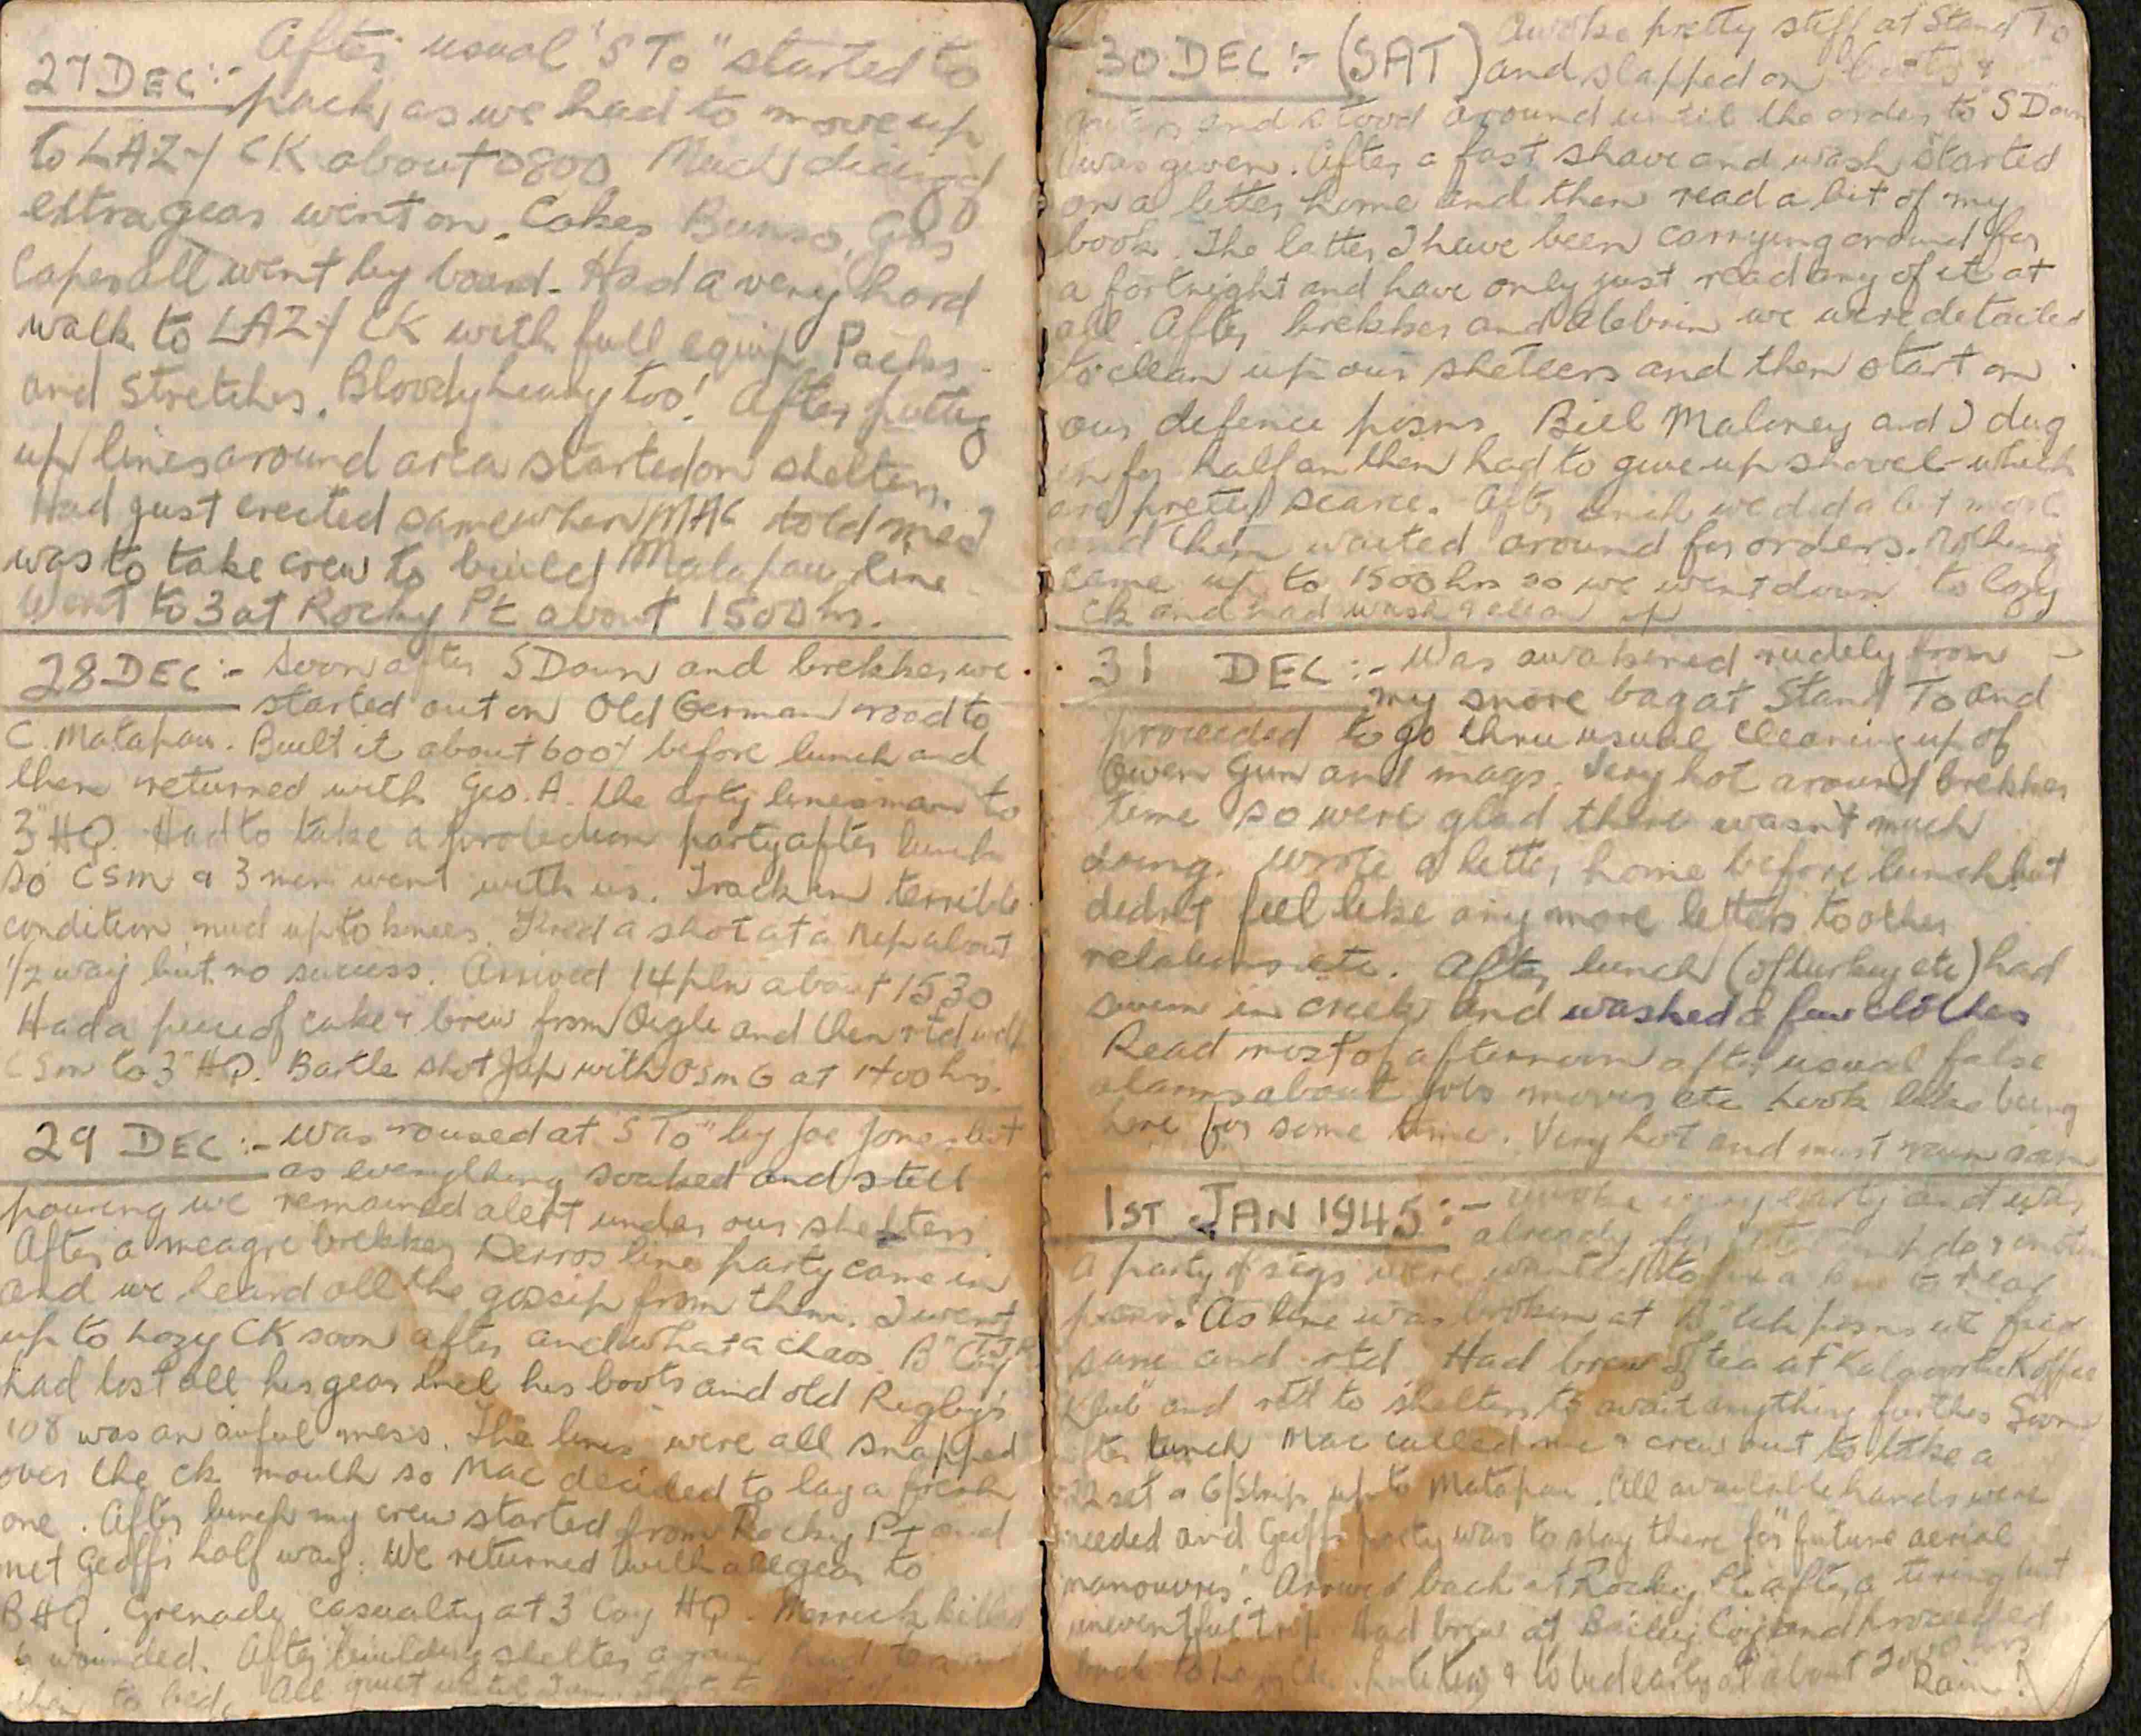 27 DEC:- After usual "S To" started to
pack as we had to move up
to LAZY CK about 0800 Much dicing of
extra gear went on. Cakes Buns, Gas
Capes all went by board. Had a very hard
walk to LAZY CK with full equip Packs
and Stretches. Bloody heavy too! After putting
up lines around area started on shelters.
Had just erected same when MAC told me I
was to take crew to build Matapau line
Went to 3 at Rocky Pt about 1500 hrs.
28 DEC:- Soon after S Down and brekker we
started out on Old German road to
C. Matapau. Built it about 600y before lunch and
then returned with Geo. A. the arty linesman to
3" HQ. Had to take a protection party after lunch
so CSM & 3 men went with us. Track in terrible
condition mud up to knees. Fired a shot at a Nip about
1/2 way but no success. Arrived 14 pln about 1530
Had a piece of cake & brew from and then rtd with
CSM to 3" HQ. Bartle shot Jap with OSMG at 1400 hrs.
29 DEC:- Was roused at "S To" by Joe Jones but
as everything soaked and still
pouring we remained alert under our shelters
After a meagre brekker Derros line party came in
and we heard all the gossip from them. I went
up to Lazy CK soon after and what a chaos. B" Coy
had lost all his gear incl his boots and old Rigby's
108 was an awful mess. The lines were all snapped
over the ck mouth so Mac decided to lay a fresh
one. After lunch my crew started from Rocky Pt and
met Geoff's half way. We returned with all gear to
BHQ. Grenade casualty at 3 Coy HQ. Merrick killed
6 wounded. After building shelter again had tea and
then to bed. All quiet until
30 DEC:- (SAT) Awoke pretty stiff at Stand To
and slapped on boots &
gaiters and stood around until the order to "S Down
was given. After a fast shave and wash started
on a letter home and then read a bit of my
book. The latter I have been carrying around for
a fortnight and have only just read any of it at
all. After brekker and atebrin we were detailed
to clean up our shelters and then start on
our defence posns. Bill Maloney and I dug
in for half an then had to give up shovel - which
are pretty scarce. After lunch we did a bit more
and then waited around for orders. Nothing
came up to 1500 hrs so we went down to lazy
ck and had wash & clean up
31 DEC:- Was awakened rudely from
my snore bag at Stand To and
proceeded to go thru usual cleaning up of
Owen Gun and mags. Very hot around brekker
time so were glad there wasn't much
doing. Wrote a letter home before lunch but
didn't feel like any more letters to other
relations etc. After lunch (of turkey etc) had
swim in creek and washed a few clothes
Read most of afternoon after usual false
alarms about jobs moves etc. Look like being
here for some time. Very hot and must rain soon
1ST JAN 1945:- Awoke very early and was
already for
A party of sigs were wanted to a line to rear
posn. As line was broken at B" posns we fixed
same and rtd. Had brew of tea at "Kalgoorlie Koffee
Klub" and rtd to shelters to await anything further Soon
after lunch Mac called me & crew out to take a
22 set & G/Strip up to Matapau. All available hands were
needed and Geoff's party was to stay there for "future aerial
manouvres". Arrived back at Rocky Pt after a tiring but
uneventful trip. Had brew at Bailey Coy and proceeded
back to & to bed early at about 2000 hrs
Rain!